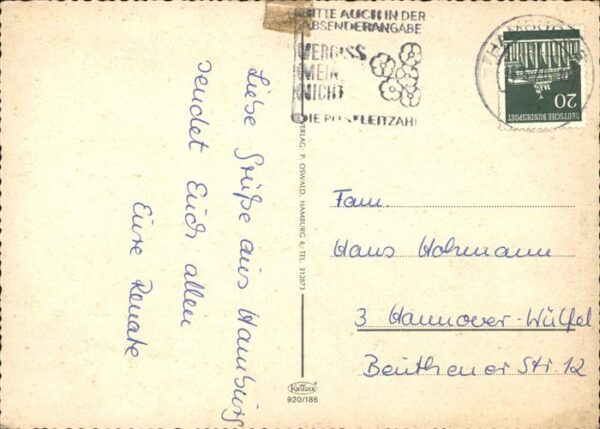 BITTE AUCH IN DER
ABSENDERANGABE
VERGISS
MEIN
NICHT
DIE POSTLEITZAHL
HAMBURG
20
DEUTSCHE BUNDESPOST
Liebe Grüße aus Hamburg
sendet Euch allen
Eure Renate
VERLAG: P. OSWALD, HAMBURG 4, TEL. 312873
Fam.
Hans Hohmann
3 Hannover-Wülfel
Beuthener Str. 12
Krüger
920/186